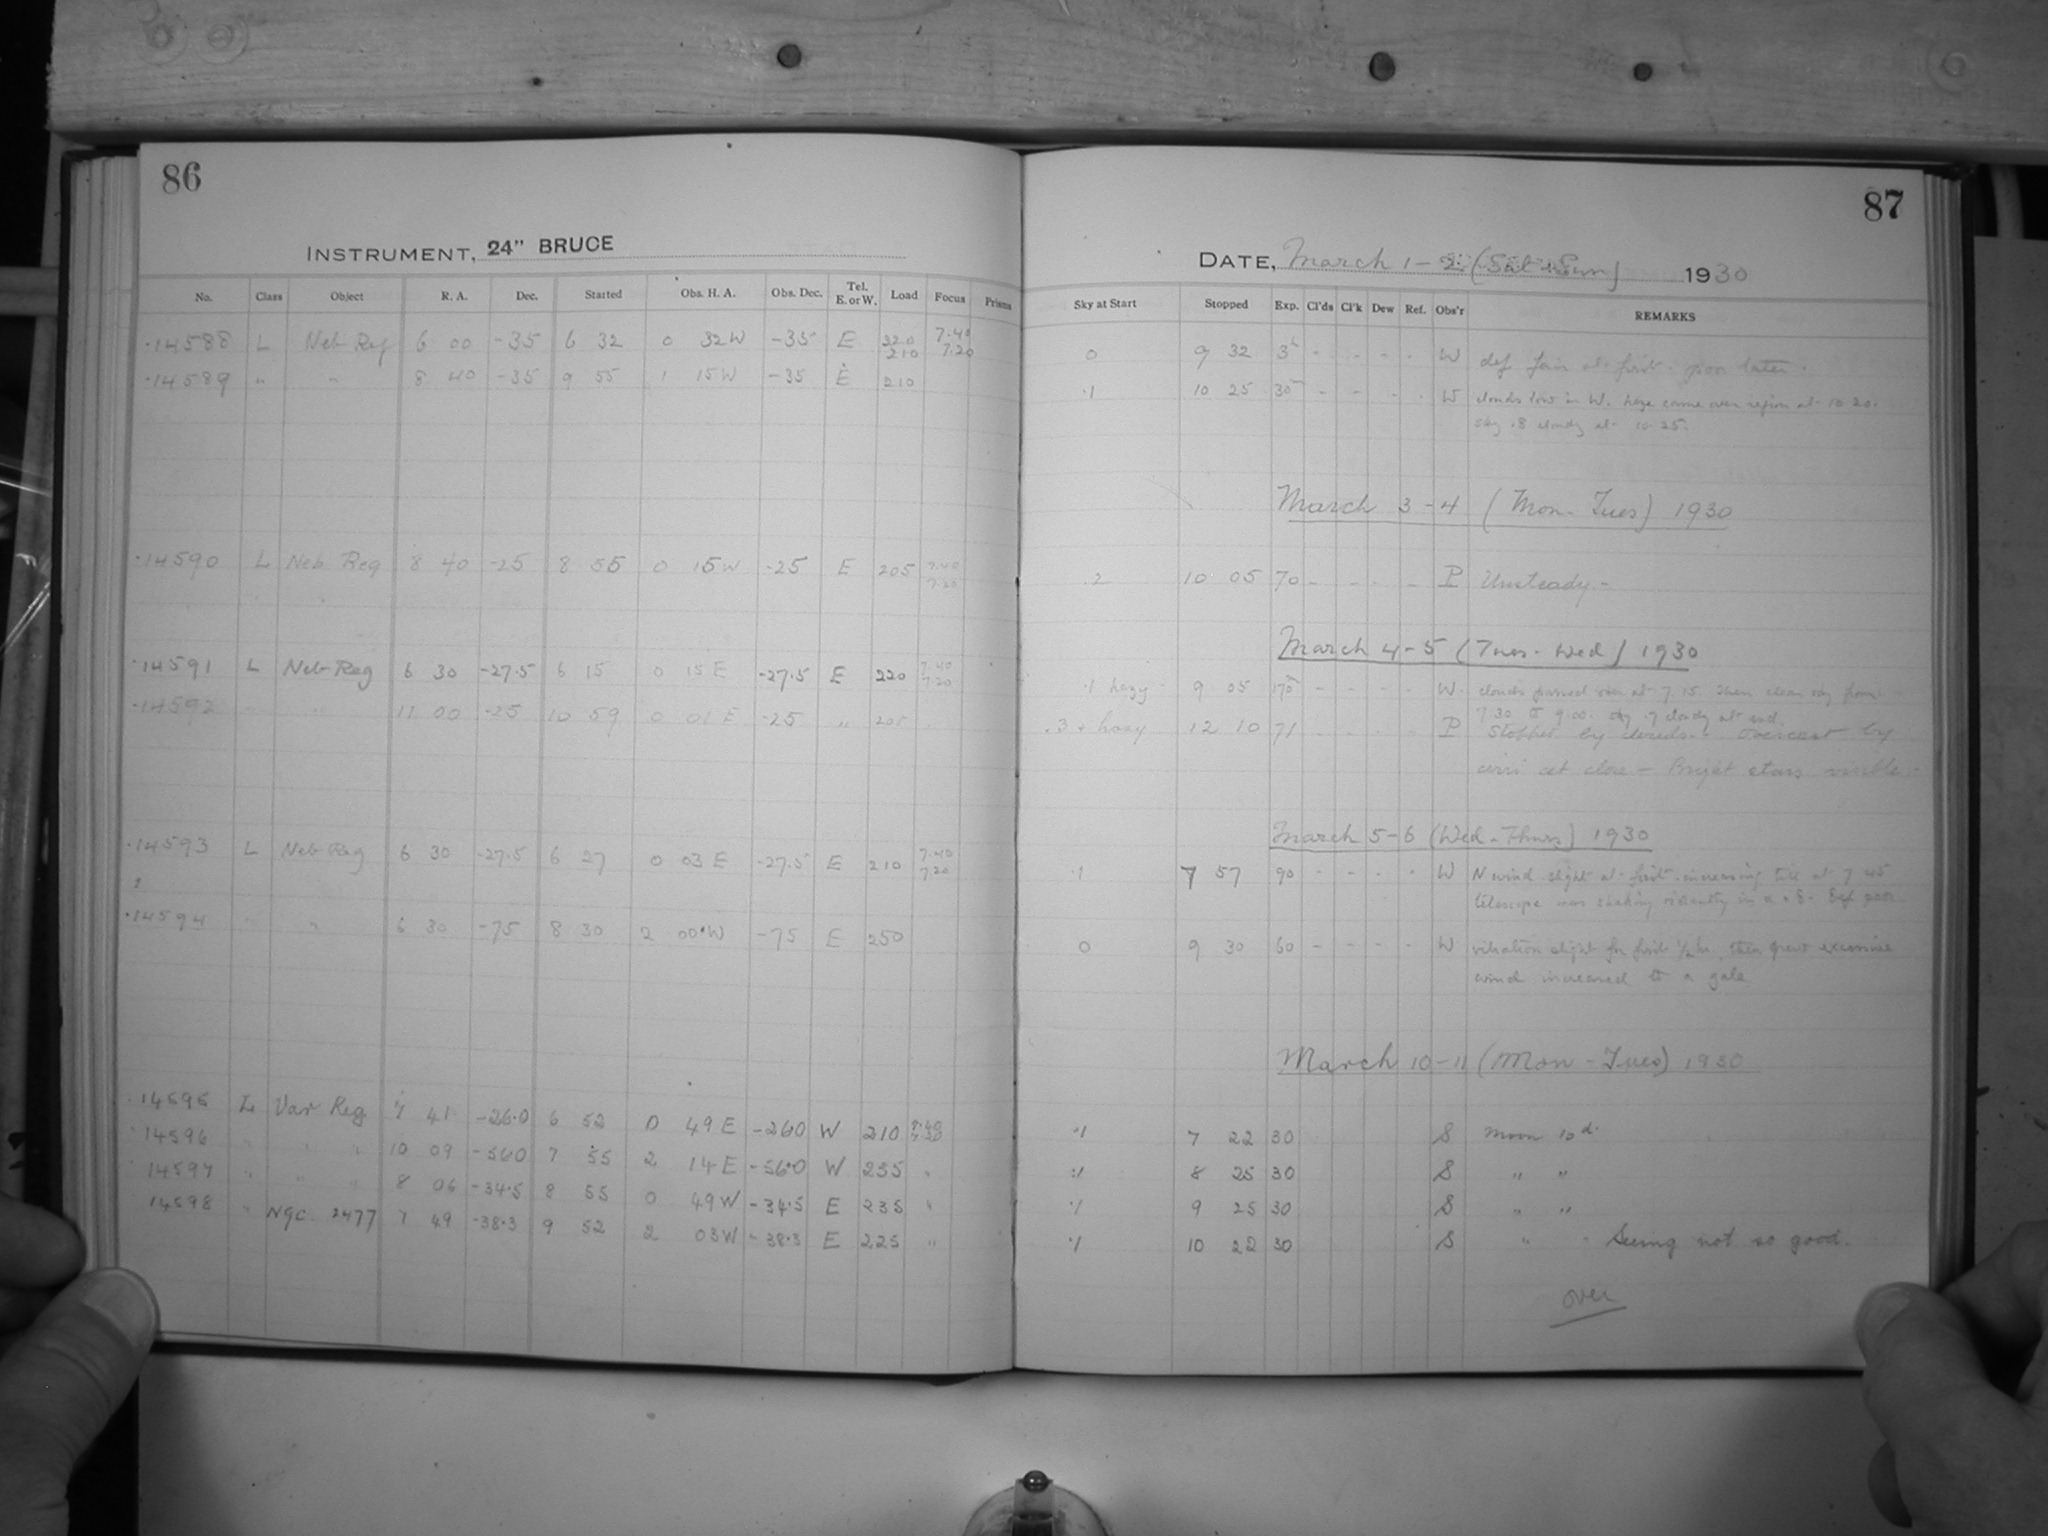 86
INSTRUMENT, 24" BRUCE
No. Class Object R. A. Dec. Started Obs. H. A. Obs. Dec. Tel. E. or W. Load Focus Prisms
14588 L Neb Reg 6 00 -35 6 32 0 32 W -35 E 220 7.40
210 7.20
14589 " " 8 40 -35 9 55 1 15 W -35 E 210
14590 L Neb Reg 8 40 -25 8 55 0 15 W -25 E 205 7.40
7.20
14591 L Neb Reg 6 30 -27.5 6 15 0 15 E -27.5 E 220 7.40
7.20
14592 " " 11 00 -25 10 59 0 01 E -25 " 205
14593 L Neb Reg 6 30 -27.5 6 27 0 03 E -27.5 E 210 7.40
7.20
14594 " " 6 30 -75 8 30 2 00 W -75 E 250
14595 L Var Reg 7 41 -26.0 6 52 0 49 E -26.0 W 210 7.40
7.20
14596 " " " 10 09 -56.0 7 55 2 14 E -56.0 W 235 "
14597 " " " 8 06 -34.5 8 55 0 49 W -34.5 E 235 "
14598 " NGC 2477 7 49 -38.3 9 52 2 03 W -38.3 E 225 "
87
DATE, March 1-2 (Sat-Sun) 1930
Sky at Start Stopped Exp. Cl'ds Cl'k Dew Ref. Obs'r REMARKS
0 9 32 3h - - - - W def fair at first. poor later.
.1 10 25 30m - - - - W clouds low in W. haze came over region at 10 20.
sky .8 cloudy at 10.25.
March 3-4 (Mon-Tues) 1930
.2 10 05 70 - - - - P Unsteady.-
March 4-5 (Tues-Wed) 1930
.1 hazy 9 05 170m - - - - W. clouds passed over at 7.15. then clear sky from
7.30 to 9.00. sky .7 cloudy at end.
.3 + hazy 12 10 71 - - - - P Stopped by clouds - overcast by
cirri at close - Bright stars visible.
March 5-6 (Wed-Thurs) 1930
.1 7 57 90 - - - - W N wind slight at first increasing till at 7 45
telescope was shaking violently in Def poor
0 9 30 60 - - - - W vibration slight for first 1/2 hr. then grew excessive
wind increased to a gale
March 10-11 (Mon-Tues) 1930
.1 7 22 30 S Moon 10d
.1 8 25 30 S " "
.1 9 25 30 S " "
.1 10 22 30 S " " Seeing not so good.
over